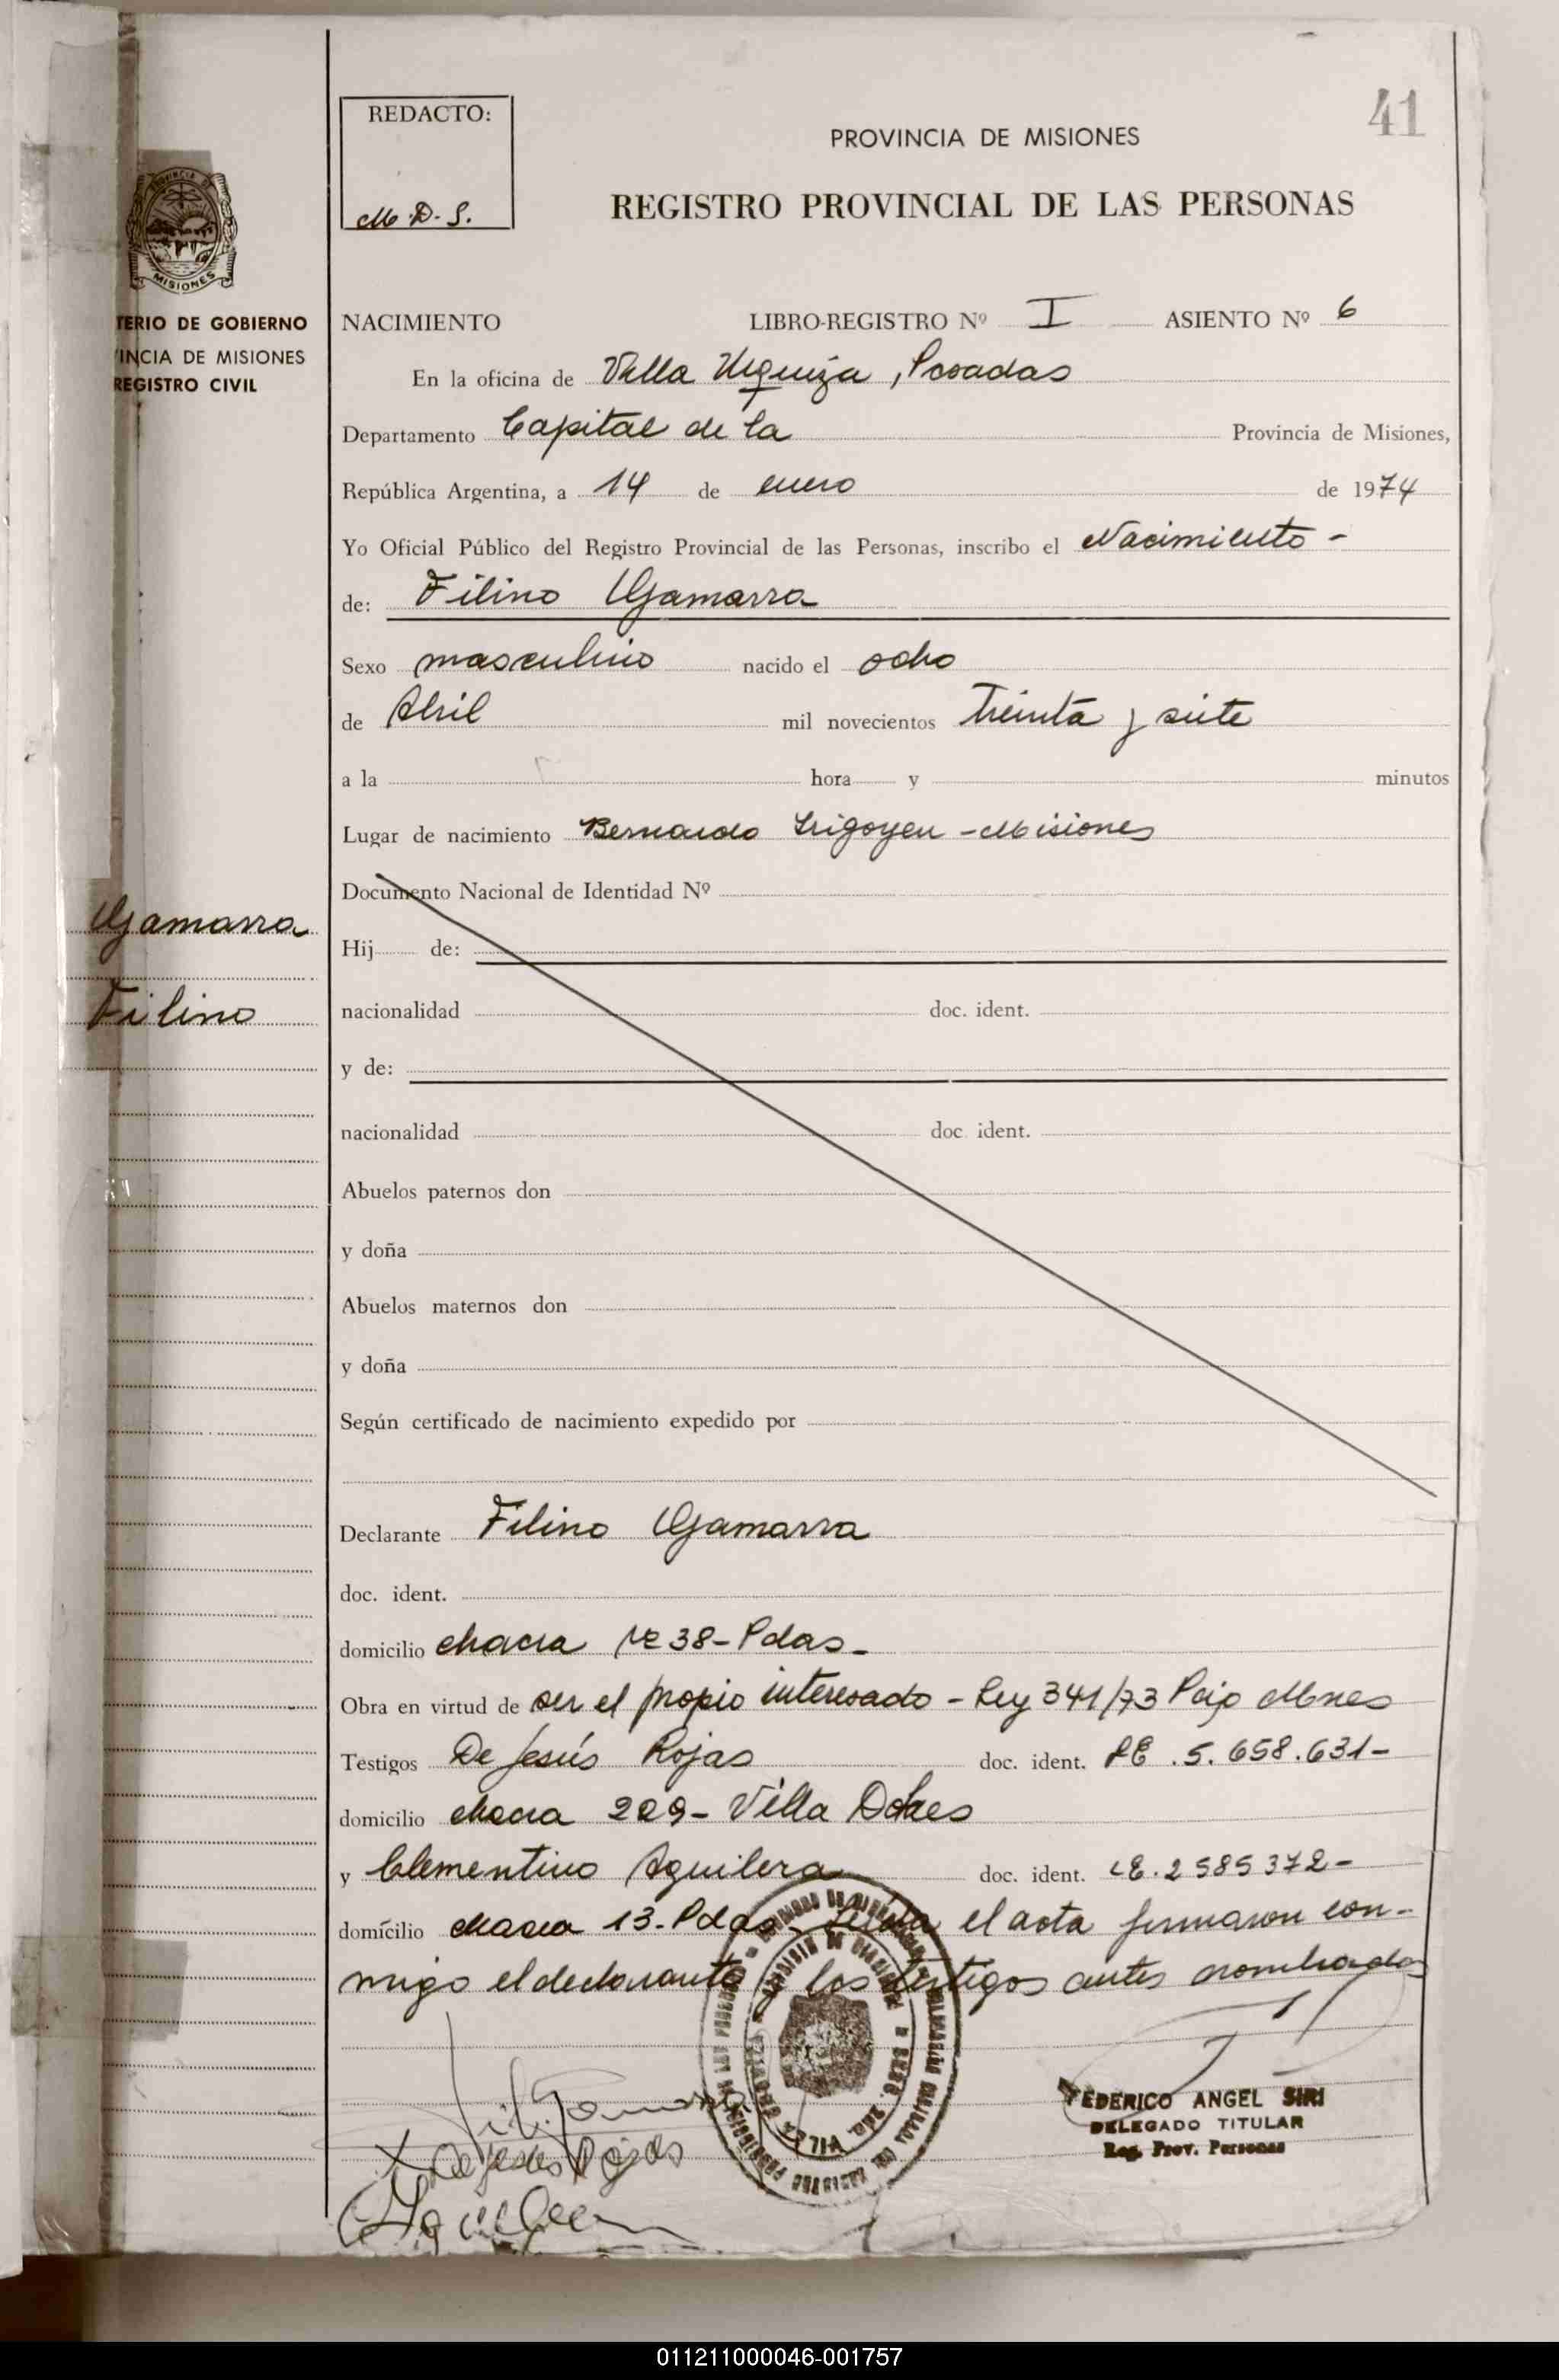 41
REDACTO:
M.D.S.
PROVINCIA DE MISIONES
REGISTRO PROVINCIAL DE LAS PERSONAS
PROVINCIA DE
MISIONES
TERIO DE GOBIERNO
INCIA DE MISIONES
REGISTRO CIVIL
NACIMIENTO LIBRO-REGISTRO Nº I ASIENTO Nº 6
En la oficina de Villa Urquiza, Posadas
Departamento Capital de la Provincia de Misiones,
República Argentina, a 14 de enero de 1974
Yo Oficial Público del Registro Provincial de las Personas, inscribo el Nacimiento -
de: Filino Gamarra
Sexo masculino nacido el ocho
de Abril mil novecientos treinta y siete
a la hora y minutos
Lugar de nacimiento Bernardo Irigoyen - Misiones
Documento Nacional de Identidad Nº
Gamarra
Hij de:
Filino
nacionalidad doc. ident.
y de:
nacionalidad doc. ident.
Abuelos paternos don
y doña
Abuelos maternos don
y doña
Según certificado de nacimiento expedido por
Declarante Filino Gamarra
doc. ident.
domicilio chacra Nº 38 - Pdas -
Obra en virtud de ser el propio interesado - Ley 341/73 Mnes
Testigos De Jesús Rojas doc. ident. 5.658.631-
domicilio chacra 209 - Villa
y Clementino Aguilera doc. ident. LE. 2585372-
domicilio chacra 13 - Pdas - Leída el acta firmaron con-
migo el declarante y los testigos antes nombrados
De Jesus Rojas
FEDERICO ANGEL SIRI
DELEGADO TITULAR
Reg. Prov. Personas
011211000046-001757